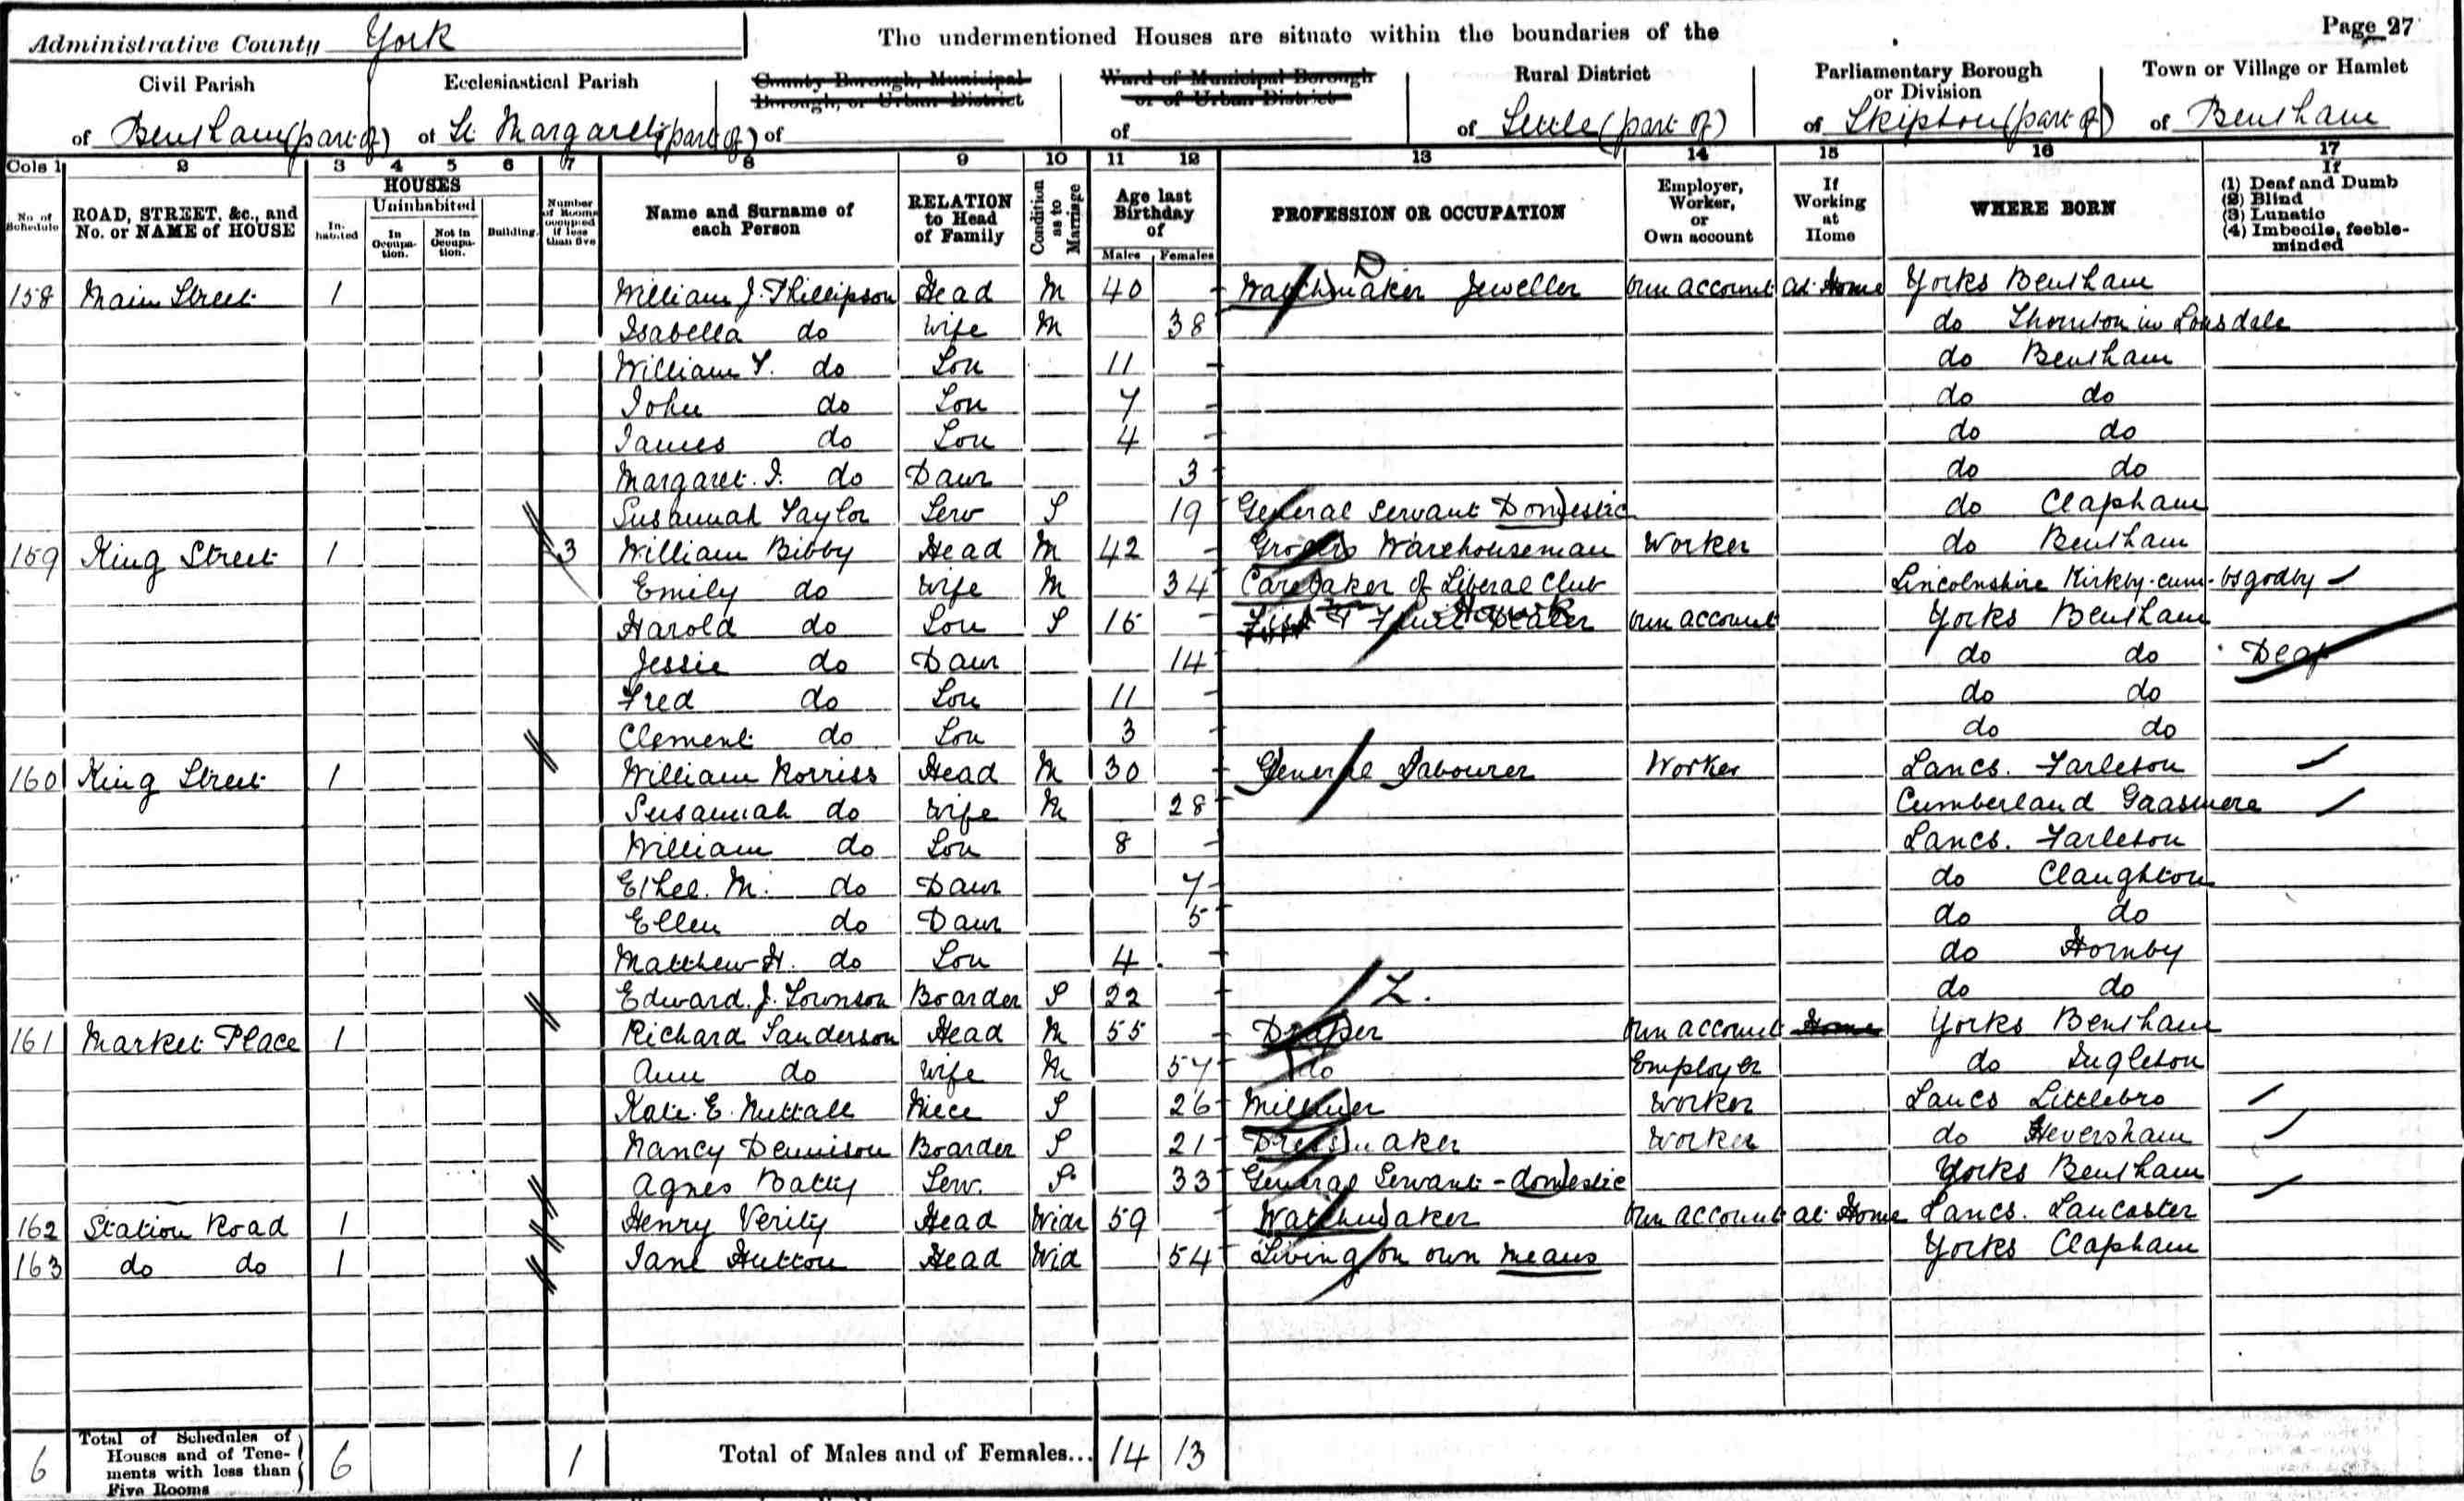 Administrative County York
The undermentioned Houses are situate within the boundaries of the
Page 27
Civil Parish of Bentham (part of)
Ecclesiastical Parish of St. Margarets (part of)
County Borough, Municipal Borough, or Urban District of
Ward of Municipal Borough or of Urban District of
Rural District of Settle (part of)
Parliamentary Borough or Division of Skipton (part of)
Town or Village or Hamlet of Bentham
Cols 1 2 3 4 5 6 7 8 9 10 11 12 13 14 15 16 17
No. of Schedule
ROAD, STREET, &c., and No. or NAME of HOUSE
HOUSES
Inhabited
Uninhabited
In Occupation.
Not in Occupation.
Building.
Number of Rooms occupied if less than five
Name and Surname of each Person
RELATION to Head of Family
Condition as to Marriage
Age last Birthday of
Males Females
PROFESSION OR OCCUPATION
Employer, Worker, or Own account
If Working at Home
WHERE BORN
If (1) Deaf and Dumb (2) Blind (3) Lunatic (4) Imbecile, feeble-minded
158 Main Street 1 William J. Phillipson Head M 40 Watchmaker Jeweller Own account at Home Yorks Bentham
Isabella do Wife M 38 do Thornton in Lonsdale
William T. do Son 11 do Bentham
John do Son 7 do do
James do Son 4 do do
Margaret I. do Daur 3 do do
Susannah Taylor Serv S 19 General Servant Domestic do Clapham
159 King Street 1 3 William Bibby Head M 42 Grocers Warehouseman Worker do Bentham
Emily do Wife M 34 Caretaker of Liberal Club Lincolnshire Kirkby-cum-Osgodby
Harold do Son S 15 Fish & Fruit Hawker Own account Yorks Bentham
Jessie do Daur 14 do do Deaf
Fred do Son 11 do do
Clement do Son 3 do do
160 King Street 1 William Norriss Head M 30 General Labourer Worker Lancs. Farleton
Susannah do Wife M 28 Cumberland Gaasmere
William do Son 8 Lancs. Farleton
Ethel. M. do Daur 7 do Claughton
Ellen do Daur 5 do do
Matthew H. do Son 4 do Hornby
Edward. J. Townson Boarder S 22 do do
161 Market Place 1 Richard Sanderson Head M 55 Draper Own account Home Yorks Bentham
Ann do Wife M 57 do Employer do Ingleton
Kate. E. Nuttall Niece S 26 Milliner Worker Lancs Littlebro
Nancy Dennison Boarder S 21 Dressmaker Worker do Heversham
Agnes Batty Serv. S 33 General Servant - domestic Yorks Bentham
162 Station Road 1 Henry Verity Head Widr 59 Watchmaker Own account at Home Lancs. Lancaster
163 do do 1 Jane Hutton Head Wid 54 Living on own means Yorks Clapham
6 Total of Schedules of Houses and of Tenements with less than Five Rooms 6 1 Total of Males and of Females... 14 13